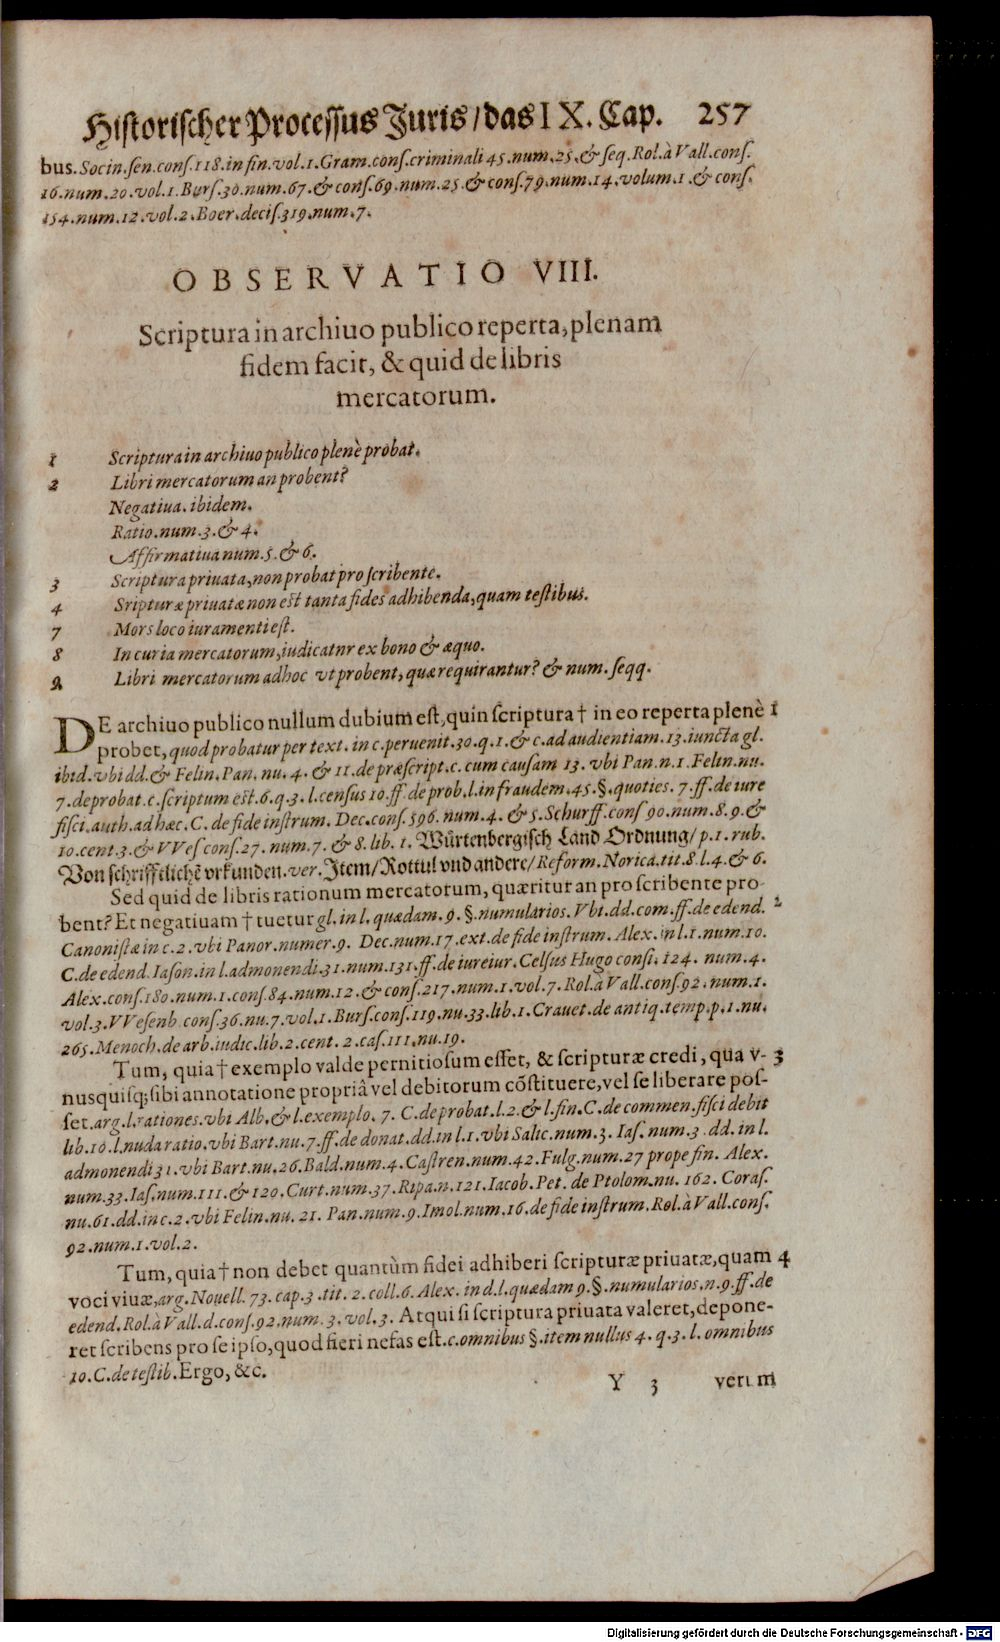 Historischer Processus Juris/das IX. Cap. 257
bus. Socin. sen. cons. 118. in fin. vol. 1. Gram. cons. criminali 45. num. 25. & seq. Rol. à Vall. cons.
16. num. 20. vol. 1. Burs. 30. num. 67. & cons. 69. num. 25. & cons. 79. num. 14. volum. 1. & cons.
154. num. 12. vol. 2. Boer. decis. 319. num. 7.
OBSERVATIO VIII.
Scriptura in archiuo publico reperta, plenam
fidem facit, & quid de libris
mercatorum.
1 Scriptura in archiuo publico plenè probat.
2 Libri mercatorum an probent?
Negatiua. ibidem.
Ratio. num. 3. & 4.
Affirmatiua num. 5. & 6.
3 Scriptura priuata, non probat pro scribente.
4 Sripturæ priuatæ non est tanta fides adhibenda, quam testibus.
7 Mors loco iuramenti est.
8 In curia mercatorum, iudicatnr ex bono & æquo.
9 Libri mercatorum ad hoc vt probent, quæ requirantur? & num. seqq.
DE archiuo publico nullum dubium est, quin scriptura † in eo reperta plenè 1
probet, quod probatur per text. in c. peruenit. 30. q. 1. & c. ad audientiam. 13. iuncta gl.
ibid. vbi dd. & Felin. Pan. nu. 4. & 11. de præscript. c. cum causam 13. vbi Pan. n. 1. Felin. nu.
7. de probat. c. scriptum est. 6. q. 3. l. census 10. ff. de prob. l. in fraudem. 45. §. quoties. 7. ff. de iure
fisci. auth. ad hæc. C. de fide instrum. Dec. cons. 596. num. 4. & 5. Schurff. cons 90. num. 8. 9. &
10. cent. 3. & VVes cons. 27. num. 7. & 8. lib. 1. Würtenbergisch Land Ordnung/ p. 1. rub.
Von schrifftlichē vrkunden. ver. Item/ Rottul vnd andere/ Reform. Norica. tit. 8. l. 4. & 6.
Sed quid de libris rationum mercatorum, quæritur an pro scribente pro-
bent? Et negatiuam † tuetur gl. in l. quædam. 9. §. numularios. Vbi. dd. com. ff. de edend. 2
Canonistæ in c. 2. vbi Panor. numer. 9. Dec. num. 17. ext. de fide instrum. Alex. in l. 1. num. 10.
C. de edend. Iason. in l. admonendi. 31. num. 131. ff. de iureiur. Celsus Hugo consi. 124. num. 4.
Alex. cons. 180. num. 1. cons. 84. num. 12. & cons. 217. num. 1. vol. 7. Rol. à Vall. cons. 92. num. 1.
vol. 3. VVesenb. cons. 36. nu. 7. vol. 1. Burs. cons. 119. nu. 33. lib. 1. Crauet. de antiq. temp. p. 1. nu.
265. Menoch. de arb. iudic. lib. 2. cent. 2. cas. 111. nu. 19.
Tum, quia † exemplo valde pernitiosum esset, & scripturæ credi, qua v- 3
nusquisq; sibi annotatione propriâ vel debitorum cōstituere, vel se liberare pos-
set. arg. l. rationes. vbi Alb. & l. exemplo. 7. C. de probat. l. 2. & l. fin. C. de commen. fisci debit
lib. 10. l. nuda ratio. vbi Bart. nu. 7. ff. de donat. dd. in l. 1. vbi Salic. num. 3. Ias. num. 3. dd. in l.
admonendi 31. vbi Bart. nu. 26. Bald. num. 4. Castren. num. 42. Fulg. num. 27 prope fin. Alex.
num. 33. Ias. num. 111. & 120. Curt. num. 37. Ripa. n. 121. Iacob. Pet. de Ptolom. nu. 162. Coras.
nu. 61. dd. in c. 2. vbi Felin. nu. 21. Pan. num. 9. Imol. num. 16. de fide instrum. Rol. à Vall. cons.
92. num. 1. vol. 2.
Tum, quia † non debet quantùm fidei adhiberi scripturæ priuatæ, quam 4
voci viuæ, arg. Nouell. 73. cap. 3. tit. 2. coll. 6. Alex. in d. l. quædam 9. §. numularios. n. 9. ff. de
edend. Rol. à Vall. d. cons. 92. num. 3. vol. 3. Atqui si scriptura priuata valeret, depone-
ret scribens pro se ipso, quod fieri nefas est. c. omnibus §. item nullus 4. q. 3. l. omnibus
10. C. de testib. Ergo, &c.
Y 3 verum
Digitalisierung gefördert durch die Deutsche Forschungsgemeinschaft - DFG